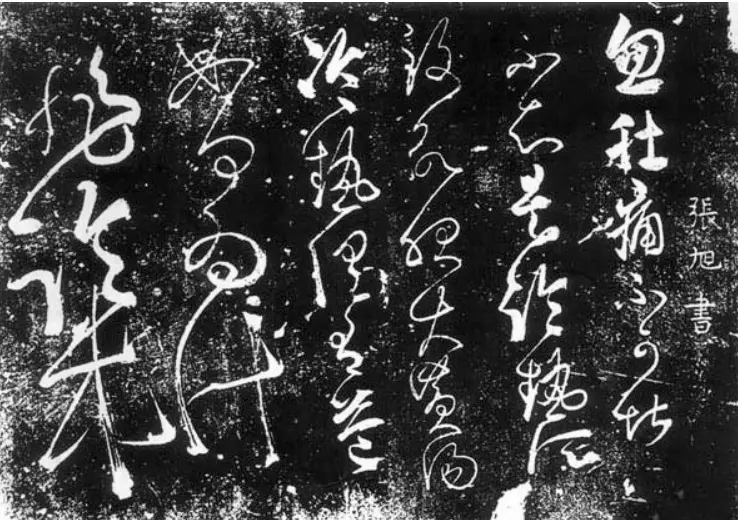 張旭書
忽肚痛不可堪
不知是冷熱所
致欲服大黃湯
冷熱俱有益
如何為計
非臨床